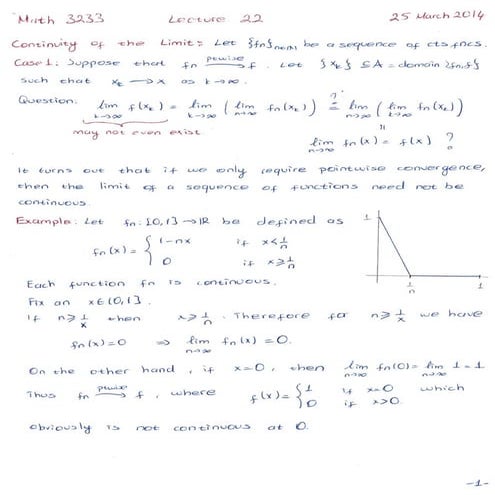 Math 3233 Lecture 22 25 March 2014
Continuity of the Limit: Let {fn}n∈ℕ be a sequence of cts fncs.
Case 1: Suppose that fn —ptwise→ f. Let {xk} ⊆ A = domain {fn,f}
such that xk → x as k→∞.
Question: lim k→∞ f(xk) = lim k→∞ ( lim n→∞ fn(xk)) ?= lim n→∞ ( lim k→∞ fn(xk))
may not even exist
=
lim n→∞ fn(x) = f(x) ?
It turns out that if we only require pointwise convergence,
then the limit of a sequence of functions need not be
continuous.
Example: Let fn: [0,1] → ℝ be defined as
fn(x) = { 1-nx if x < 1/n
0 if x ≥ 1/n
1
1/n 1
Each function fn is continuous.
Fix an x ∈ (0,1].
If n ≥ 1/x then x ≥ 1/n. Therefore for n ≥ 1/x we have
fn(x) = 0 ⇒ lim n→∞ fn(x) = 0.
On the other hand, if x=0, then lim n→∞ fn(0) = lim n→∞ 1 = 1
Thus fn —ptwise→ f, where f(x) = { 1 if x=0 which
0 if x>0.
obviously is not continuous at 0.
-1-